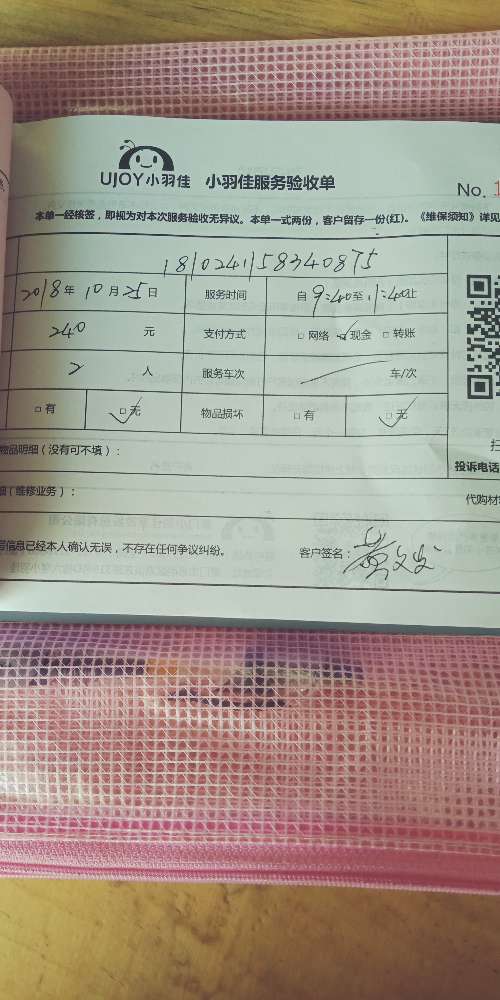 UJOY小羽佳 小羽佳服务验收单
No. 1
本单一经核签，即视为对本次服务验收无异议。本单一式两份，客户留存一份(红)。《维保须知》详见
1810241158340875
2018年10月25日 服务时间 自9:40至11:40止
240 元 支付方式 □网络 ☑现金 □转账
2 人 服务车次 车/次
□有 ☑无 物品损坏 □有 ☑无
物品明细（没有可不填）：
投诉电话
（维修业务）：
代购材
信息已经本人确认无误，不存在任何争议纠纷。 客户签名：黄